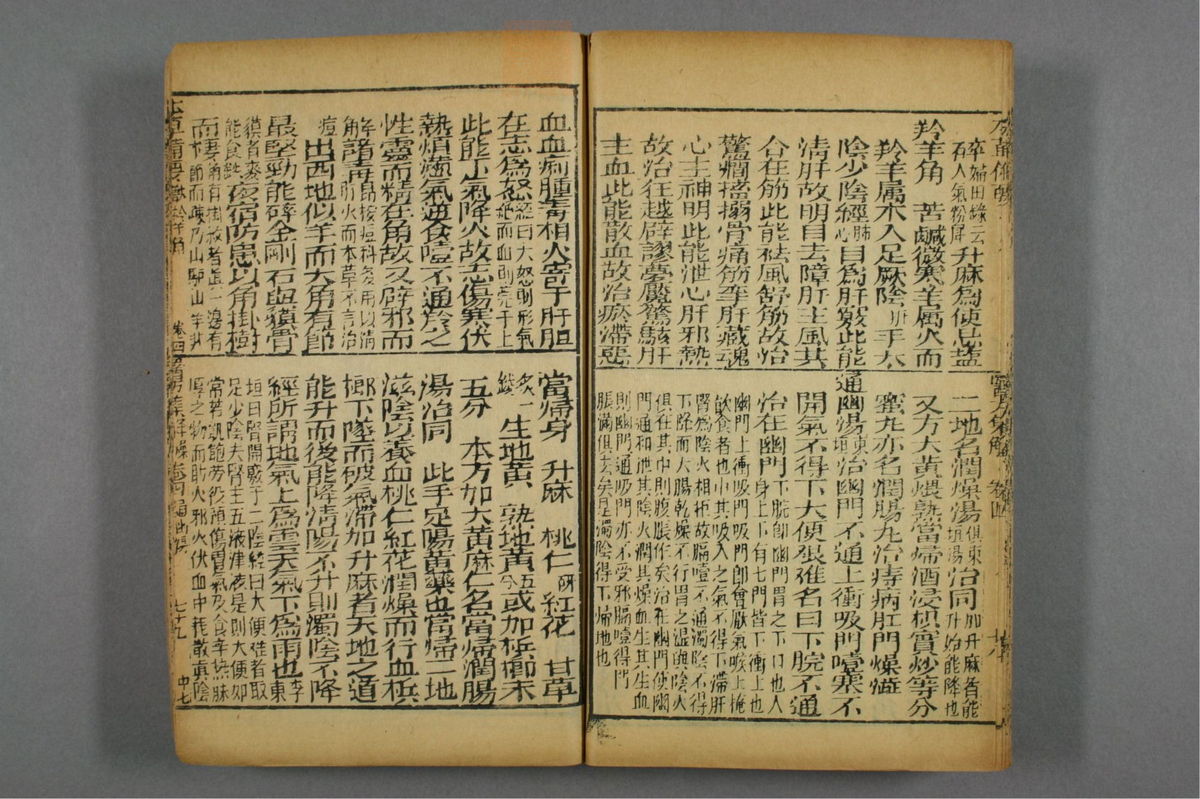 歸田錄云
人氣粉犀升麻為使忌鹽
羚羊角 苦鹹微寒羊屬火而
羚羊属木入足厥陰肝手太
陰少陰經肺心目為肝竅此能
清肝故明目去障肝主風其
合在筋此能祛風舒筋故治
驚癇搐搦骨痛筋攣肝藏魂
心主神明此能泄心肝邪熱
故治狂越辟謬夢魘驚駭肝
主血此能散血故治瘀滯惡
二地名潤燥湯俱東垣湯治同則升麻皆能升始能降也
又方大黄煨熟當歸酒浸枳實炒等分
蜜丸亦名潤腸丸治痔病肛門燥澁
通幽湯東垣治幽門不通上衝吸門噎塞不
開氣不得下大便艱難名曰下脘不通
治在幽門下脘即幽門胃之下口也人身上下有七門皆下衝上也
幽門上衝吸門吸門即會厭氣喉上掩
飲食者也中其吸入之氣不得下滯肝
腎為陰火相拒故膈噎不通濁陰不得
下降而大腸乾燥不行胃之濕與陰火
俱在其中則腹脹作矣治在幽門使幽
門通和泄其陰火潤其燥血生其生血
則幽門通吸門亦不受邪膈噎得門
脹滿俱去矣是濁陰得下歸地也
血血痢腫毒相火寄于肝胆
在志為怒經曰大怒則形氣絶而血則苑于上
此能下氣降火故志傷寒伏
熱煩懣氣逆食噎不通羚之
性靈而精在角故又辟邪而
解諸毒昂按痘科多用以清肝火而本草不言治
痘出西地似羊而大角有節
最堅勁能碎金剛石與貘骨
貘音麥能食鉄夜宿防患以角掛樹
而棲角有掛紋者真一邊有節而疎乃山驢山羊非
當歸身 升麻 桃仁硏紅花 甘草
炙一錢 生地黄 熟地黄五分或加梹榔末
五分 本方加大黄麻仁名當歸潤腸
湯治同 此手足陽黄藥也當歸二地
滋陰以養血桃仁紅花潤燥而行血梹
榔下墜而破氣滯加升麻者天地之道
能升而後能降清陽不升則濁陰不降
經所謂地氣上為雲天氣下為雨也李東
垣曰腎開竅于二陰經曰大便難者取
足少陰夫腎主五液津液足則大便如
常若飢飽勞役損傷胃氣及食辛熱味
厚之物而助火邪火伏血中耗散真陰
七十九
中七